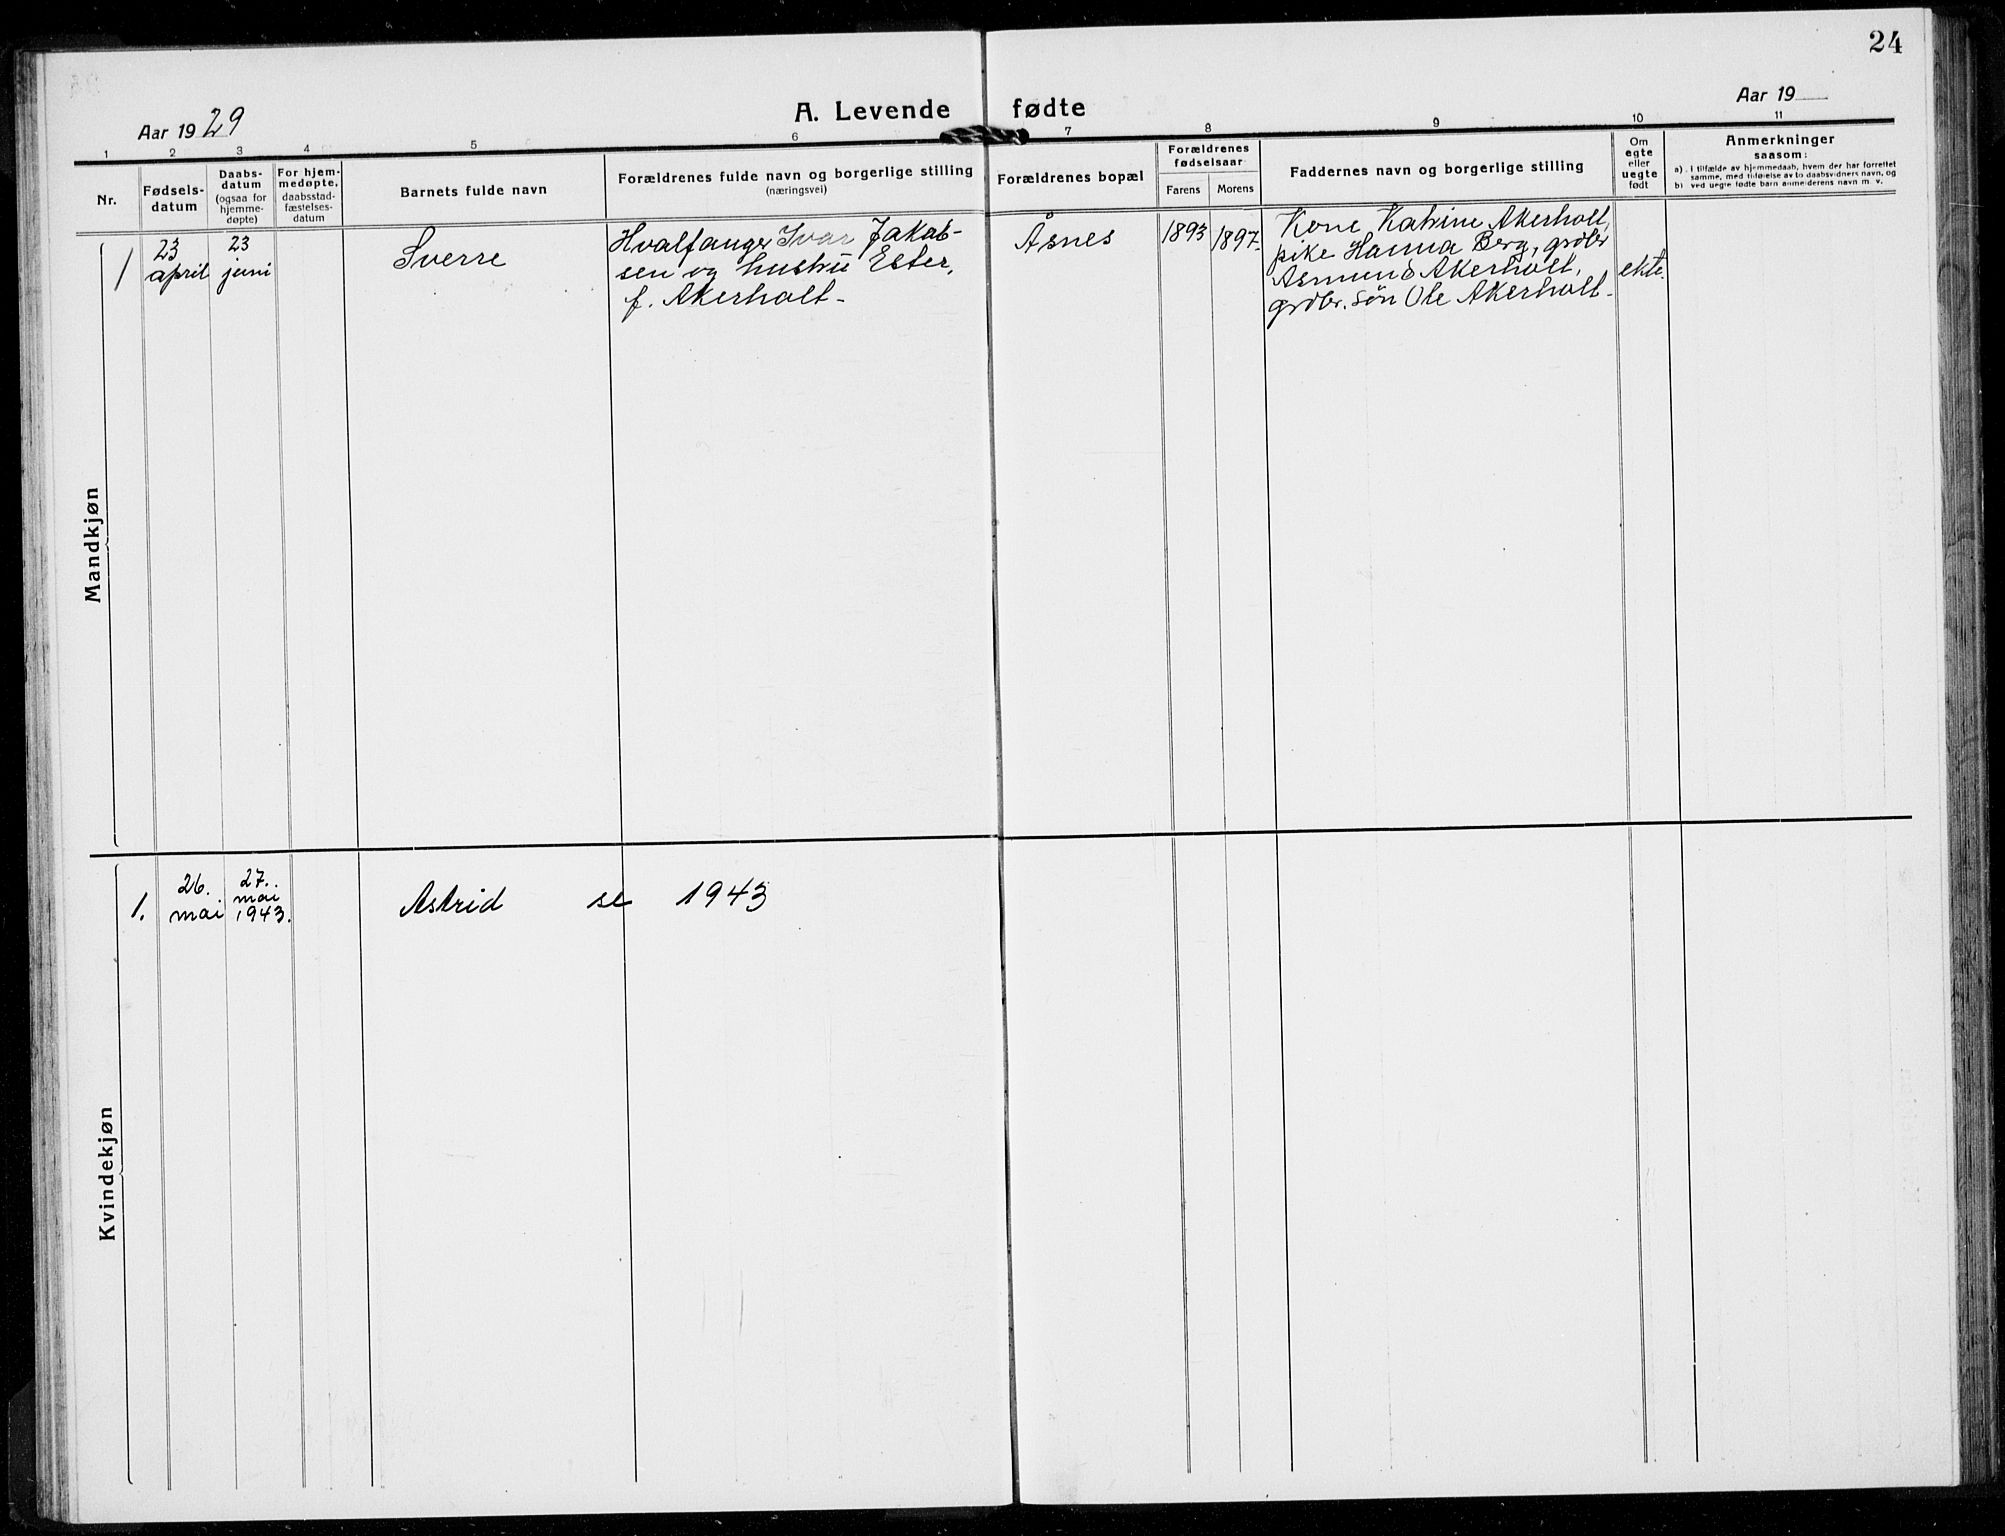 24
A. Levende fødte
Aar 1929
Aar 19
1 2 3 4 5 6 7 8 9 10 11
Nr.
Fødsels-
datum
Daabs-
datum
(ogsaa for
hjemme-
døpte)
For hjem-
medøpte,
daabsstad-
fæstelses-
datum
Barnets fulde navn
Forældrenes fulde navn og borgerlige stilling
(næringsvei)
Forældrenes bopæl
Forældrenes
fødselsaar
Farens Morens
Faddernes navn og borgerlige stilling
Om
egte
eller
uegte
født
Anmerkninger
saasom:
a). I tilfælde av hjemmedaab, hvem der har forrettet
samme, med tilføielse av to daabsvidners navn, og
b) ved uegte fødte barn anmelderens navn m. v.
Mandkjøn
1
23
april
23
juni
Sverre
Hvalfanger Ivar Jakob-
sen og hustru Ester,
f. Akerholt-
Åsnes
1893
1897.
Kone Katrine Akerholt,
pike Hanna Berg, grdbr
Asmund Akerholt,
grdbr. søn Ole Akerholt-
ekte.
Kvindekjøn
1.
26.
mai
27.
mai
1943.
Astrid se 1943